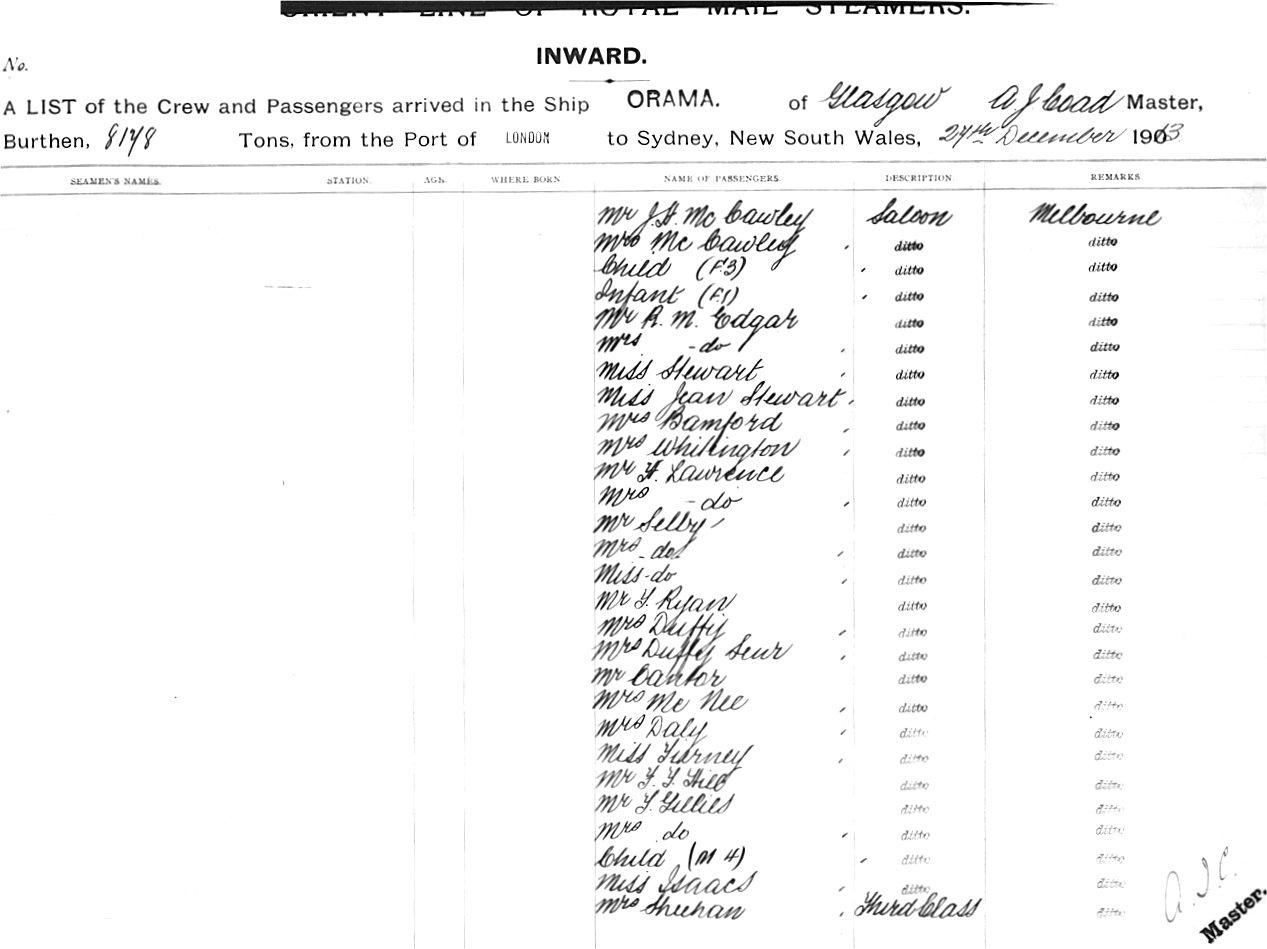 ORIENT LINE OF ROYAL MAIL STEAMERS.
INWARD.
No.
A LIST of the Crew and Passengers arrived in the Ship ORAMA. of Glasgow A J Coad Master,
Burthen, 8178 Tons, from the Port of LONDON to Sydney, New South Wales, 27th December 1913
SEAMEN'S NAMES. STATION. AGE. WHERE BORN NAME OF PASSENGERS. DESCRIPTION. REMARKS
Mr J.H. McCawley Saloon Melbourne
Mrs McCawley ditto ditto
Child (F.3) ditto ditto
Infant (F.1) ditto ditto
Mr R. M. Edgar ditto ditto
Mrs - do ditto ditto
Miss Stewart ditto ditto
Miss Jean Stewart ditto ditto
Mrs Bamford ditto ditto
Mrs Whitington ditto ditto
Mr H. Lawrence ditto ditto
Mrs - do ditto ditto
Mr Selby ditto ditto
Mrs - do ditto ditto
Miss - do ditto ditto
Mr Ryan ditto ditto
Mrs Duffy ditto ditto
Mrs Duffy Senr ditto ditto
Mr Cantor ditto ditto
Mrs Mc Nee ditto ditto
Mrs Daly ditto ditto
Miss ditto ditto
Mr Hill ditto ditto
Mr Gillies ditto ditto
Mrs do ditto ditto
Child (M 4) ditto ditto
Miss Isaacs ditto ditto
Mrs Sheehan Third Class ditto
A. J. C.
Master.